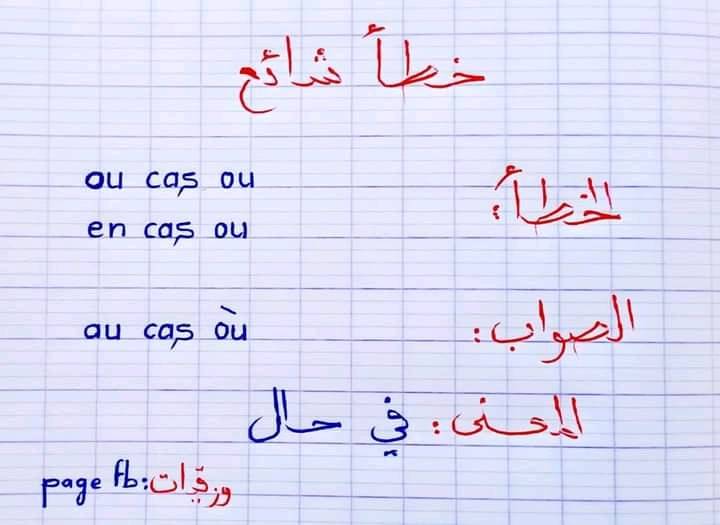 خطأ شائع
الخطأ:
ou cas ou
en cas ou
الصواب:
au cas où
المعنى: في حال
page fb: ورقات